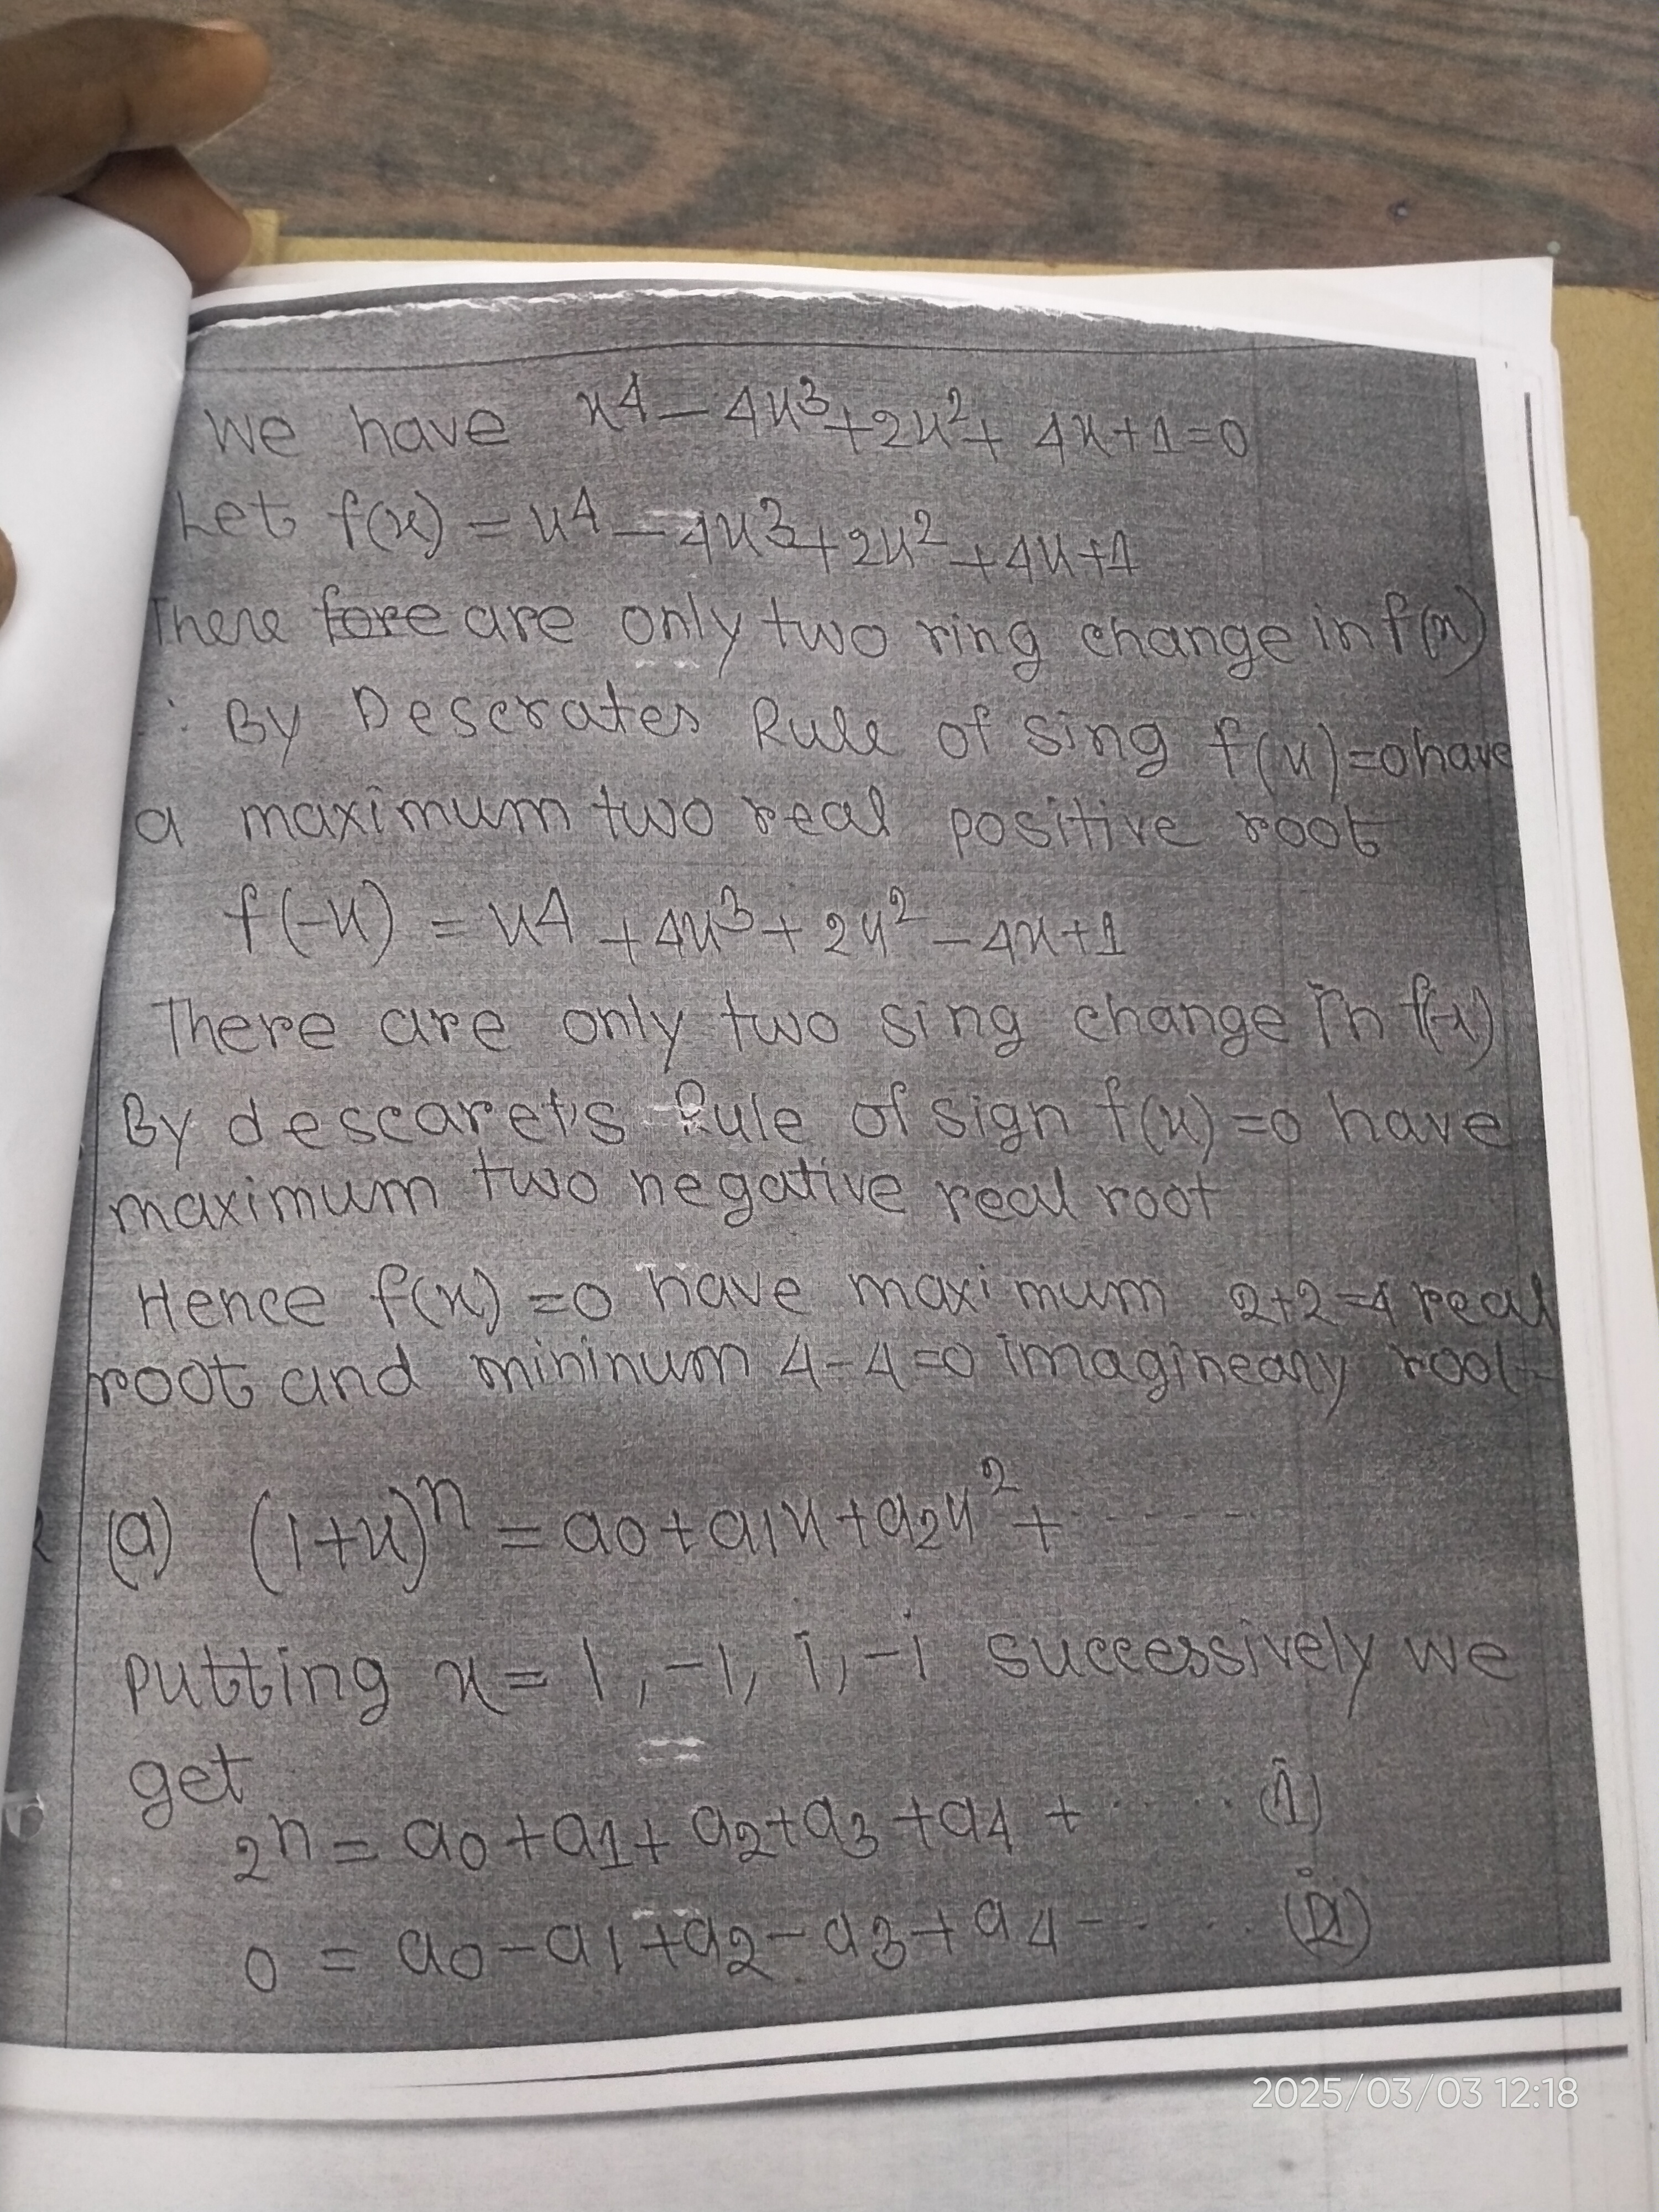 We have x⁴ - 4x³ + 2x² + 4x + 1 = 0
Let f(x) = x⁴ - 4x³ + 2x² + 4x + 1
There fore are only two ring change in f(x)
∴ By Descrates Rule of sing f(x) = 0 have
a maximum two real positive root
f(-x) = x⁴ + 4x³ + 2x² - 4x + 1
There are only two sing change in f(-x)
By descaret's Rule of sign f(x) = 0 have
maximum two negative real root
Hence f(x) = 0 have maximum 2+2=4 real
root and mininum 4-4=0 imagineary root
(a) (1+x)ⁿ = a0 + a1x + a2x² + ......
putting x = 1, -1, i, -i successively we
get
2ⁿ = a0 + a1 + a2 + a3 + a4 + ..... (1)
0 = a0 - a1 + a2 - a3 + a4 - .... (2)
2025/03/03 12:18